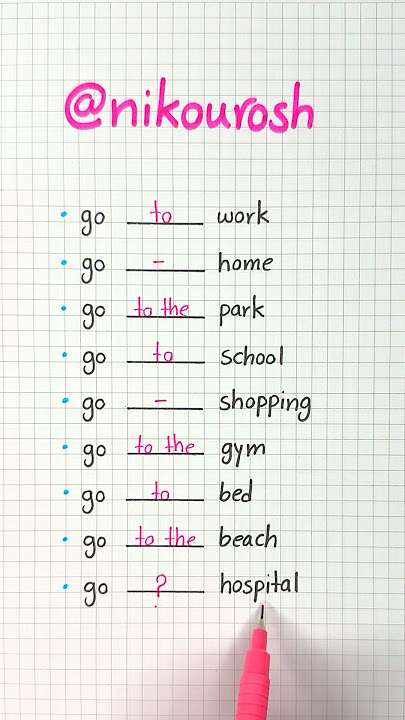 @nikourosh
• go to work
• go - home
• go to the park
• go to school
• go - shopping
• go to the gym
• go to bed
• go to the beach
• go ? hospital